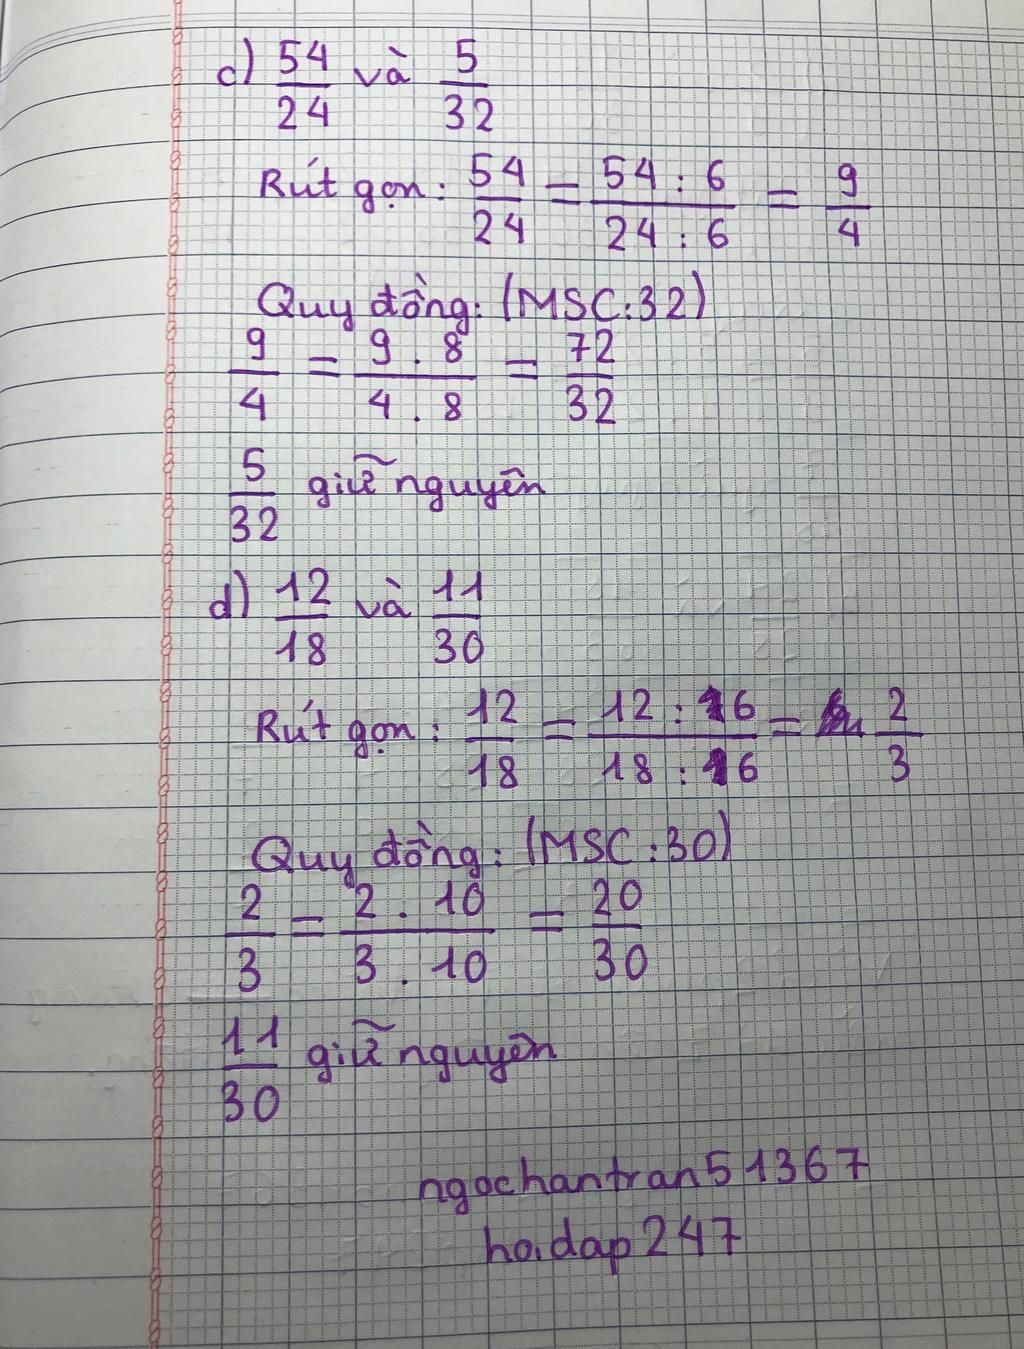 c) 54/24 và 5/32
Rút gọn: 54/24 = 54 : 6/24 : 6 = 9/4
Quy đồng: (MSC:32)
9/4 = 9 . 8/4 . 8 = 72/32
5/32 giữ nguyên
d) 12/18 và 11/30
Rút gọn: 12/18 = 12 : 6/18 : 6 = 2/3
Quy đồng: (MSC:30)
2/3 = 2 . 10/3 . 10 = 20/30
11/30 giữ nguyên
ngochantran51367
hoidap247